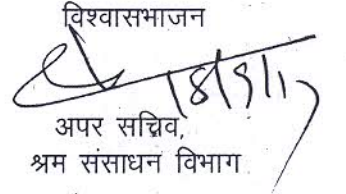 विश्वासभाजन
अपर सचिव,
श्रम संसाधन विभाग